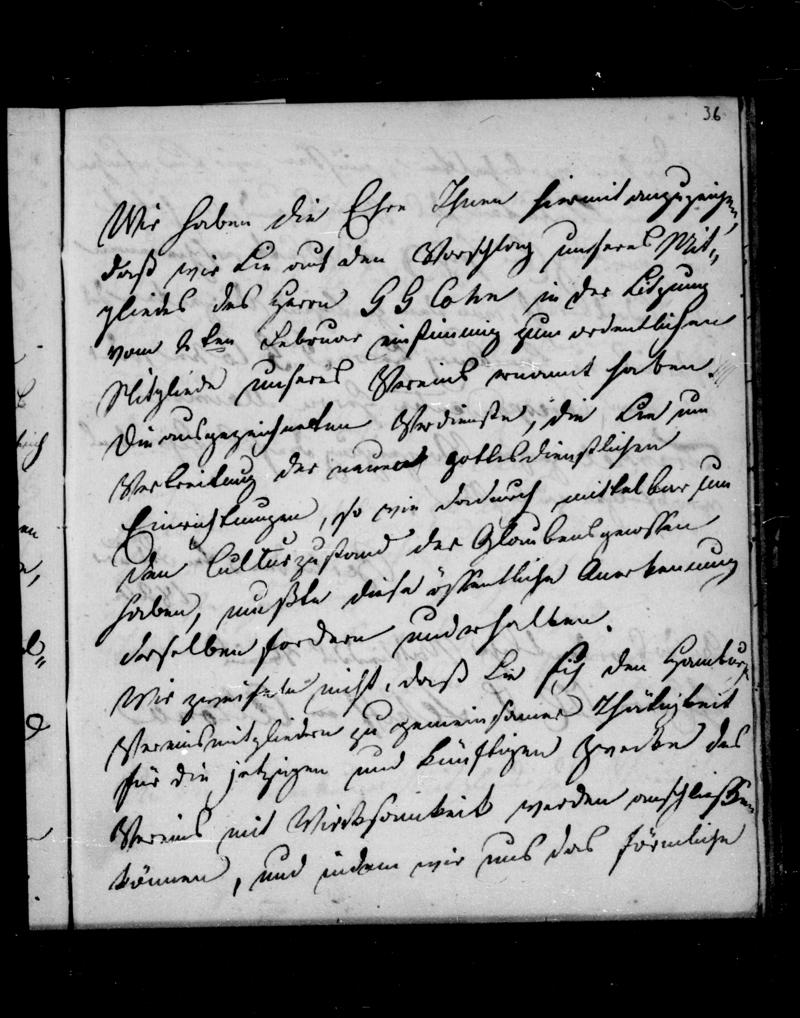 36
Wir haben die Ehre Ihnen hiermit anzuzeigen,
daß wir Sie auf den Vorschlag unseres Mit„
gliedes des Herrn G G Cohn in der Sitzung
vom 2ten Februar einstimmig zum ordentlichen
Mitgliede unseres Vereins ernannt haben.
Die ausgezeichneten Verdienste, die Sie um
Verbreitung der neuen gottesdienstlichen
Einrichtungen, so wie dadurch mittelbar um
den Culturzustand der Glaubensgenossen
haben, mußte diese öffentliche Anerkennung
derselben fordern und erhalten.
Wir zweifeln nicht, daß Sie sich den Hamburg.
Vereinsmitgliedern zu gemeinsamer Thätigkeit
für die jetzigen und künftigen Zwecke des
Vereins mit Wirksamkeit werden anschließen
können, und indem wir uns das förmliche